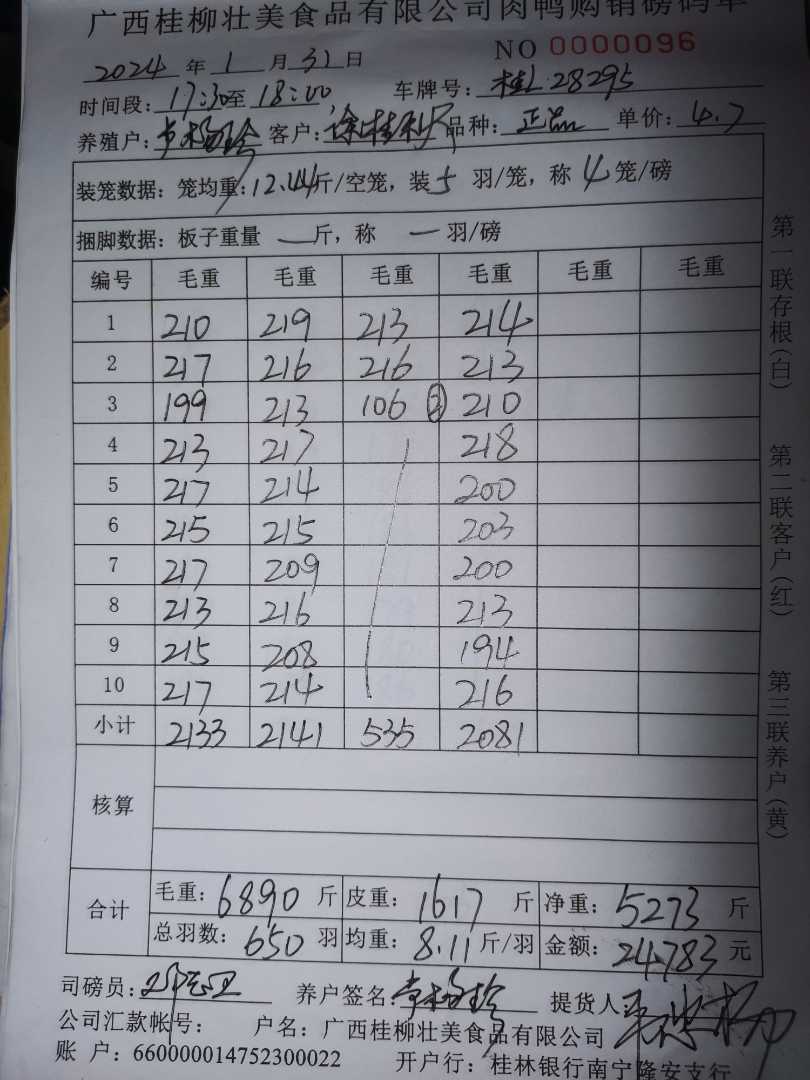 广西桂柳壮美食品有限公司肉鸭购销磅码单
2024 年 1 月 31 日 NO 0000096
时间段: 17:30至 18:00 车牌号: 桂L·28295
养殖户: 客户: 徐桂利 品种: 正品 单价: 4.7
装笼数据: 笼均重: 12.44斤/空笼, 装 5 羽/笼, 称 4 笼/磅
捆脚数据: 板子重量 — 斤, 称 — 羽/磅
编号 毛重 毛重 毛重 毛重 毛重 毛重
1 210 219 213 214
2 217 216 216 213
3 199 213 106 ② 210
4 213 217 218
5 217 214 200
6 215 215 203
7 217 209 200
8 213 216 213
9 215 208 194
10 217 214 216
小计 2133 2141 535 2081
核算
合计 毛重: 6890 斤 皮重: 1617 斤 净重: 5273 斤
总羽数: 650 羽 均重: 8.11 斤/羽 金额: 24783 元
司磅员: 养户签名: 提货人:
公司汇款帐号: 户名: 广西桂柳壮美食品有限公司
账 户: 660000014752300022 开户行: 桂林银行南宁隆安支行
第一联存根(白)
第二联客户(红)
第三联养户(黄)